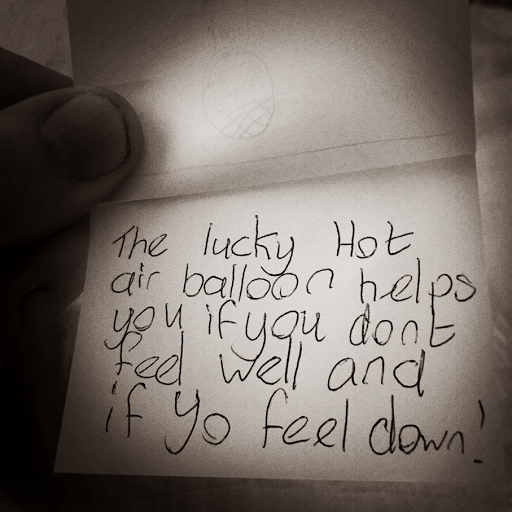 The lucky Hot
air balloon helps
you if you dont
feel well and
if yo feel down!